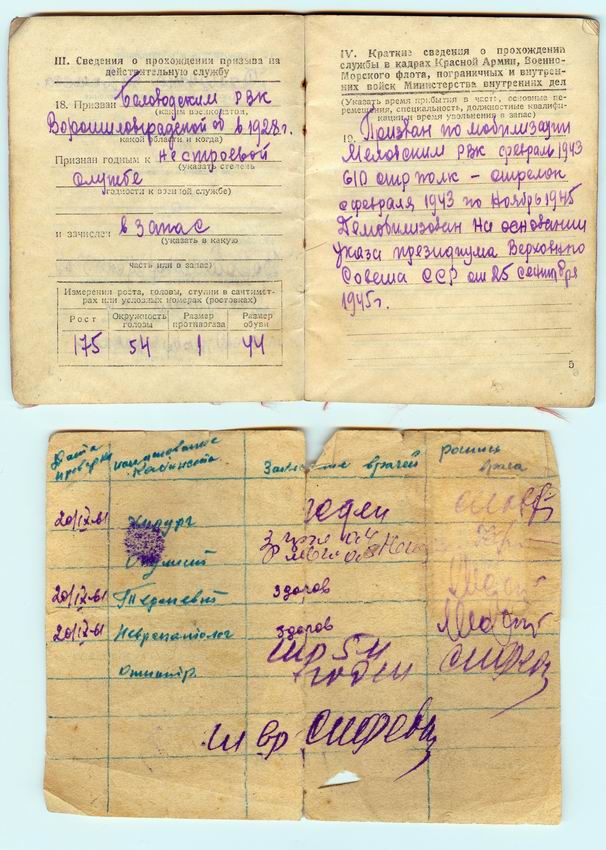 III. Сведения о прохождении призыва на
действительную службу
18. Призван Беловодским РВК
(каким военкоматом,
Ворошиловградской об в 1928 г.
какой области и когда)
Признан годным к нестроевой
(указать степень
службе
годности к военной службе)
и зачислен в запас
(указать в какую
часть или в запас)
Измерения роста, головы, ступни в сантимет-
рах или условных номерах (ростовках)
Рост Окружность головы Размер противогаза Размер обуви
175 54 1 44
IV. Краткие сведения о прохождении
службы в кадрах Красной Армии, Военно-
Морского флота, пограничных и внутрен-
них войск Министерства внутренних дел
(Указать время прибытия в часть, основные пе-
ремещения, специальность, должностные квалифи-
кации и время увольнения в запас)
19. Призван по мобилизации
Меловским РВК февраль 1943
610 стр полк – стрелок
с февраля 1943 по Ноябрь 1945
Демобилизован на основании
указа президиума Верховного
Совета ССР от 25 сентября
1945 г.
5
Дата проверки наименование кабинета врачей роспись врача
20/IX-61 Хирург годен
Окулист
20/IX-61 Терапевт здоров
20/IX-61 Невропатолог здоров
годен